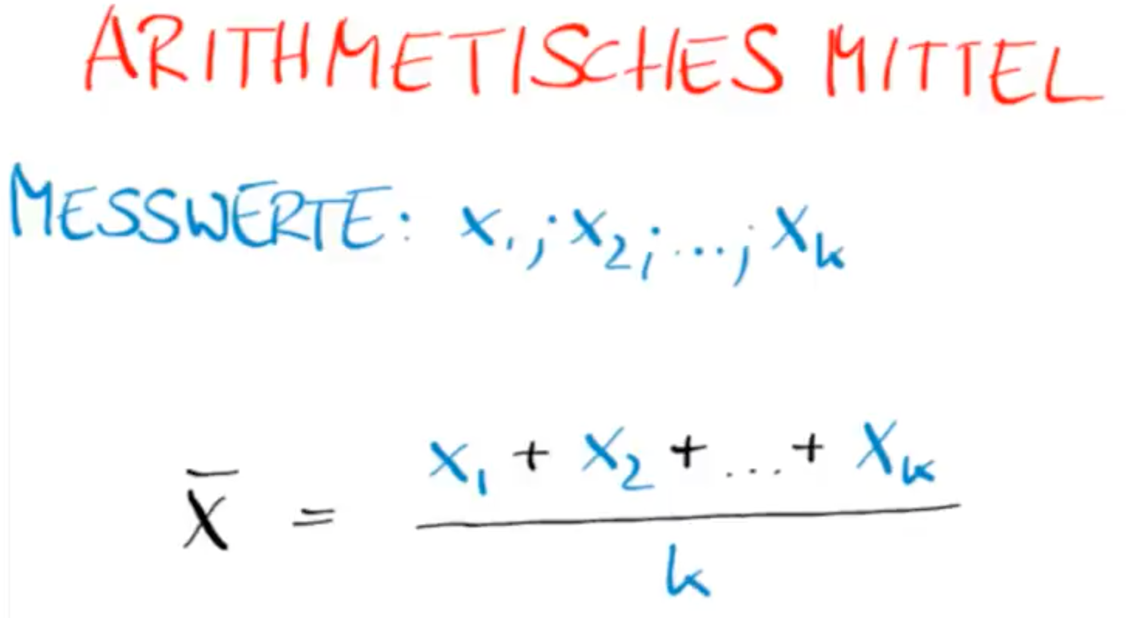 ARITHMETISCHES MITTEL
MESSWERTE: x₁; x₂; ...; xₖ
x̄ = (x₁ + x₂ + ... + xₖ) / k